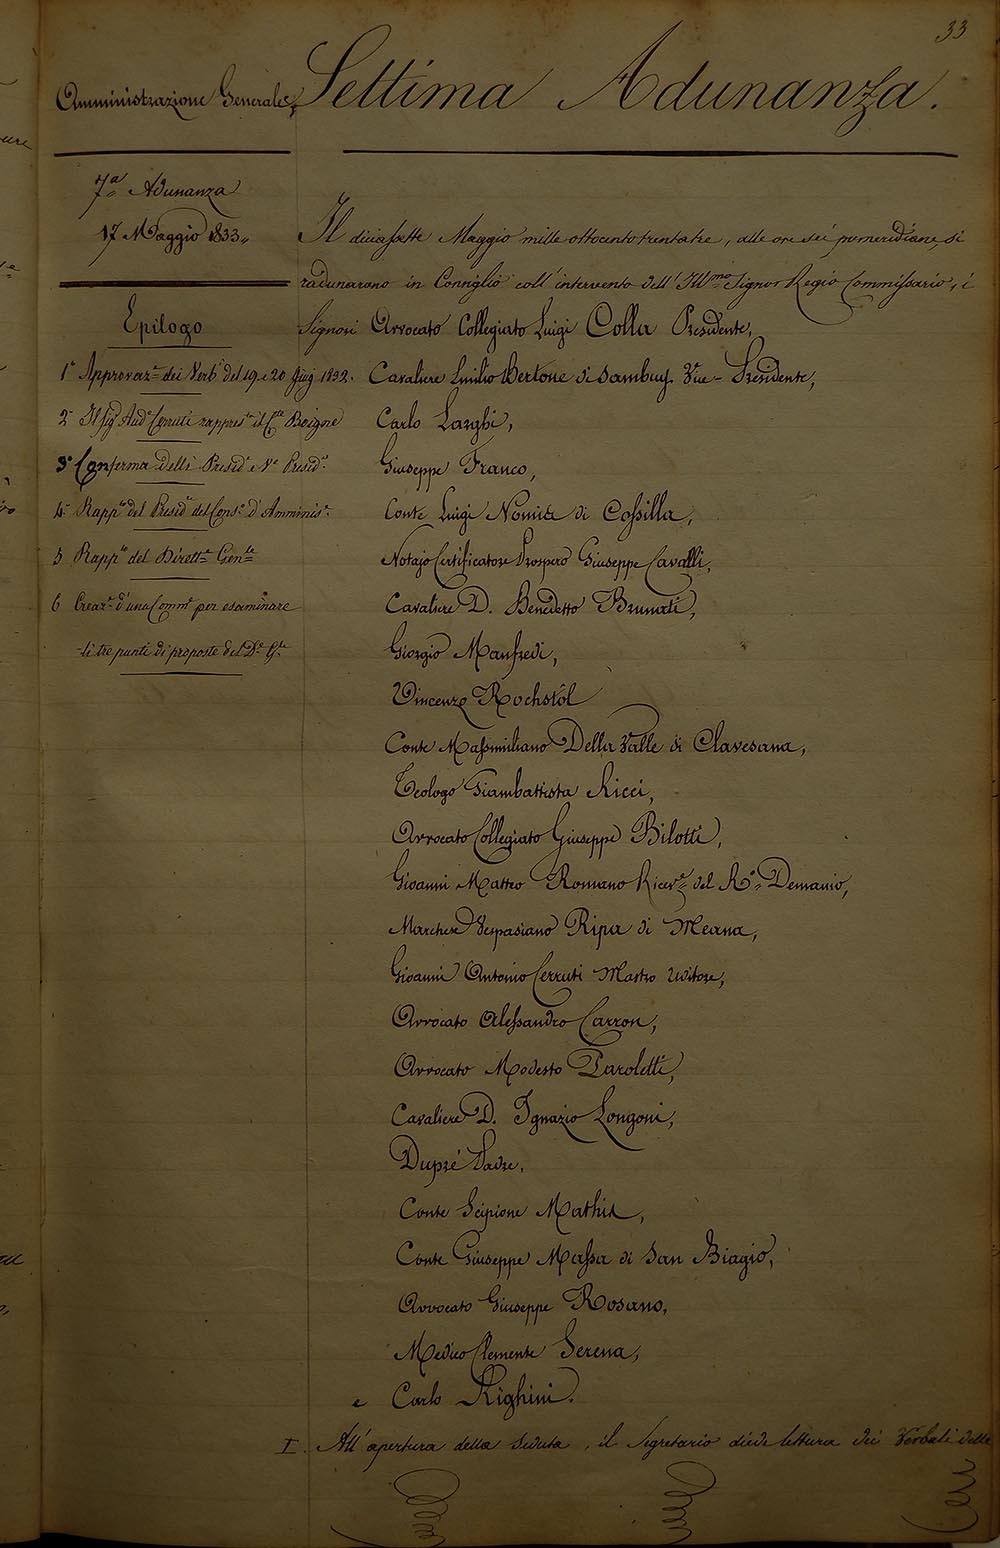 33
Amministrazione Generale
Settima Adunanza.
7.ª Adunanza
17 Maggio 1833.
Epilogo
1° Approvaz.ne dei Verb.i del 19. e 20 Giug 1832.
2° Il Sig.r Aud.e Cerruti rappres.te il C.te Boigne
3° Conferma delli Presid.e e V.e Presid.e
4° Rapp.to del Presid.e del Cons.o d'Amminis.e
5 Rapp.to del Dirett.e Gen.le
6 Creaz.e d'una Comm.e per esaminare
li tre punti di proposte del D.e G.le
Il diciassette Maggio mille ottocento trentatre, alle ore sei pomeridiane, si
radunarono in Consiglio coll'intervento dell'Ill.mo Signor Regio Commissario, i
Signori Avvocato Collegiato Luigi Colla Presidente,
Cavaliere Emilio Bertone di Sambuy. Vice-Presidente,
Carlo Larghi,
Giuseppe Franco,
Conte Luigi Nomis di Cossilla,
Notajo Certificatore Prospero Giuseppe Cavalli,
Cavaliere D. Benedetto Brunati,
Giorgio Manfredi,
Vincenzo Rochstòl
Conte Massimiliano Della Valle di Clavesana,
Teologo Giambattista Ricci,
Avvocato Collegiato Giuseppe Bilotti,
Gioanni Matteo Romano Ricev.e del R.o Demanio,
Marchese Vespasiano Ripa di Meana,
Gioanni Antonio Cerruti Mastro Uditore,
Avvocato Alessandro Carron,
Avvocato Modesto Paroletti,
Cavaliere D. Ignazio Longoni,
Dupré Padre,
Conte Scipione Mathis,
Conte Giuseppe Massa di San Biagio,
Avvocato Giuseppe Rosano,
Medico Clemente Serena,
e Carlo Righini.
I. All'apertura della Seduta, il Segretario diede lettura dei Verbali delle